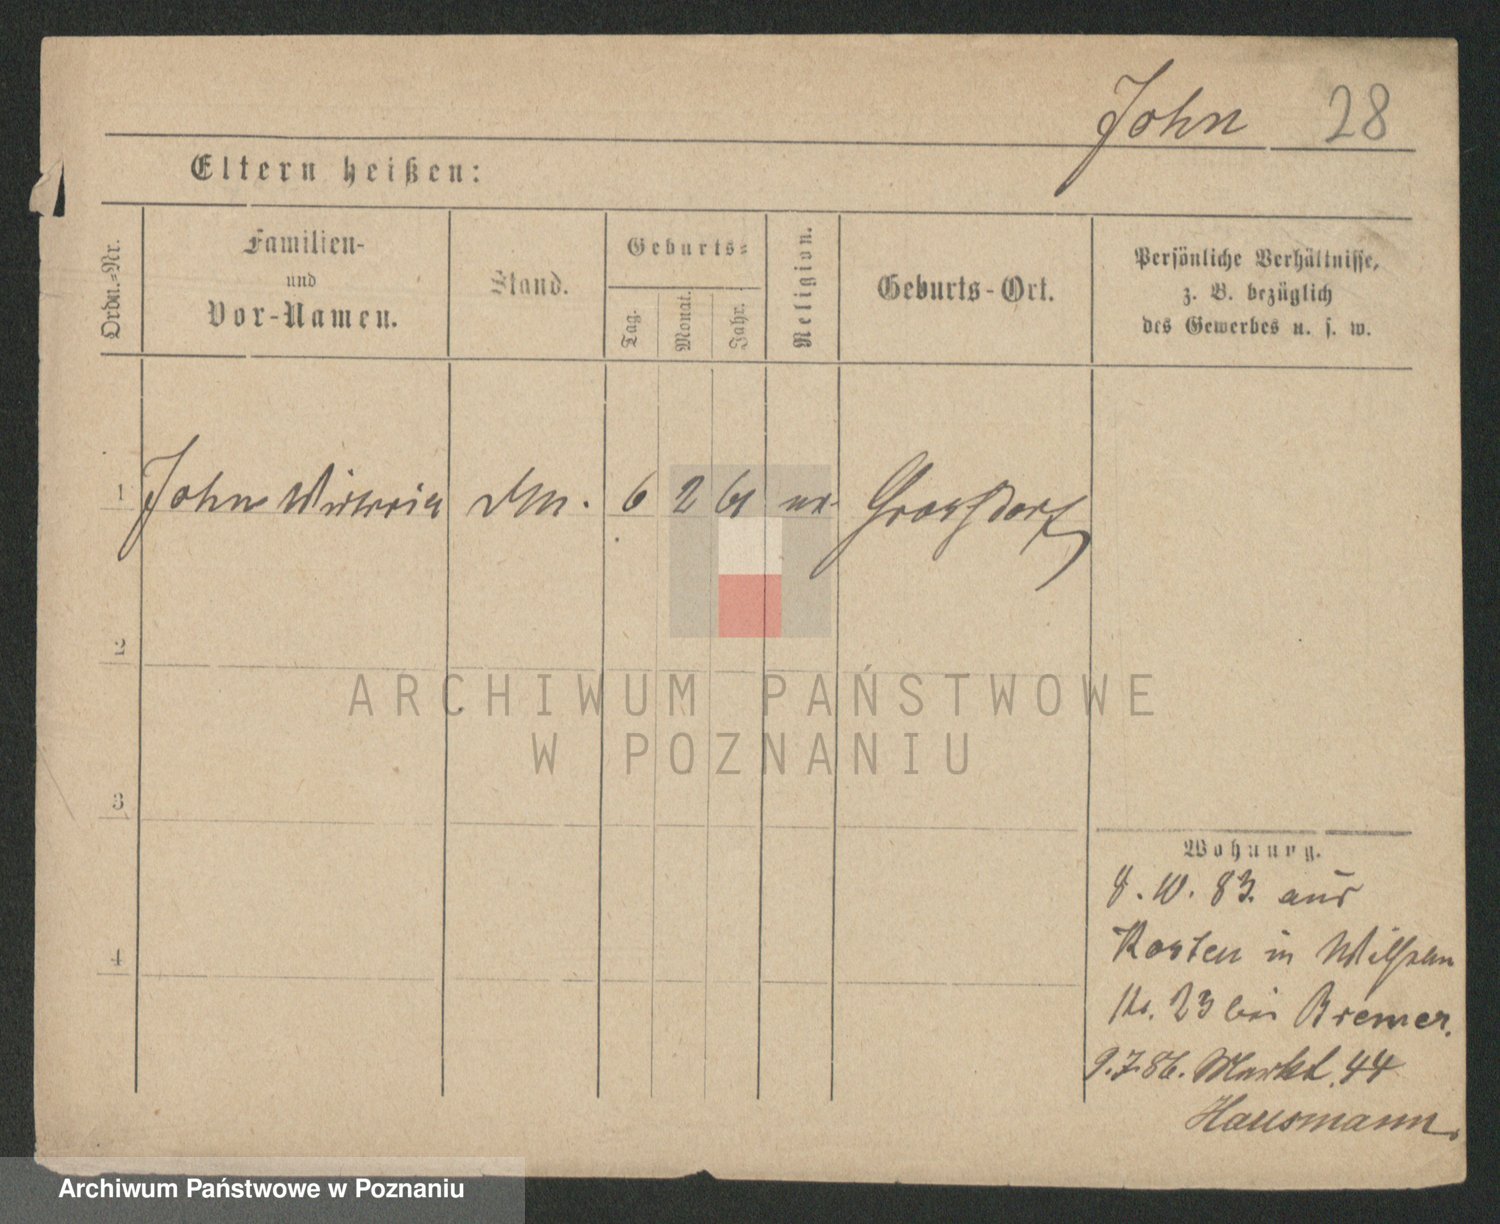 John 28
Eltern heißen:
Ordn.-Nr.
Familien-
und
Vor-Namen.
Stand.
Geburts-
Tag.
Monat.
Jahr.
Religion.
Geburts-Ort.
Persönliche Verhältnisse,
z. B. bezüglich
des Gewerbes u. s. w.
1 John 6 2 61
2
ARCHIWUM PAŃSTWOWE
W POZNANIU
3
4
Wohnung.
8. 10. 83. aus
Kosten in
No. 23 bei Bremer.
9.7.86. Markt. 44
Hausmann.
Archiwum Państwowe w Poznaniu